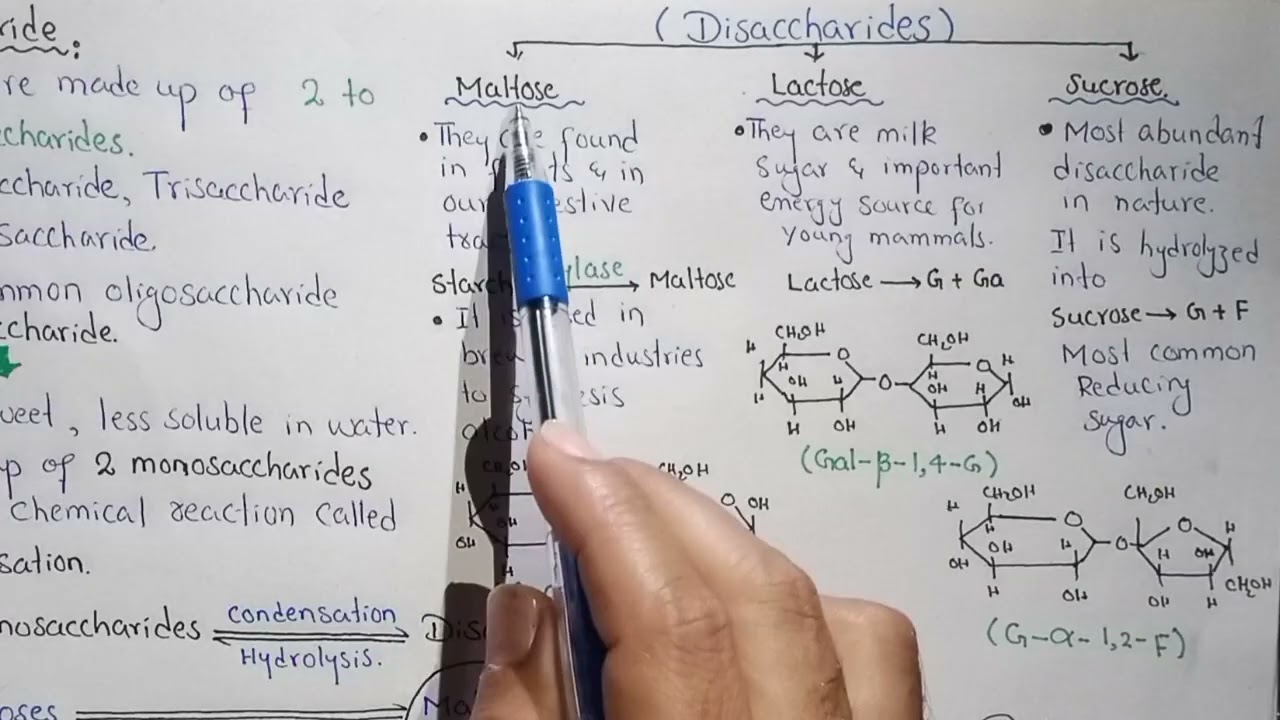 ride:
re made up of 2 to
ccharides.
ccharide, Trisaccharide
saccharide.
mmon oligosaccharide
ccharide.
weet, less soluble in water.
p of 2 monosaccharides
chemical reaction called
sation.
nosaccharides condensation
Hydrolysis.
oses
(Disaccharides)
Maltose
• They found
in & in
our
Maltose
• It in
industries
to
CH₂OH
H
OH
OH
H
CH₂OH
O OH
Lactose
• They are milk
sugar & important
energy source for
young mammals.
Lactose → G + Ga
CH₂OH CH₂OH
H O O H
H H
OH H O OH H
H OH
H OH H OH
(Gal-β-1,4-G)
Sucrose.
• Most abundant
disaccharide
in nature.
It is hydrolyzed
into
Sucrose → G + F
Most common
Reducing
sugar.
CH₂OH CH₂OH
H O O H
H
OH H O H OH
OH CH₂OH
H OH OH H
(G-α-1,2-F)